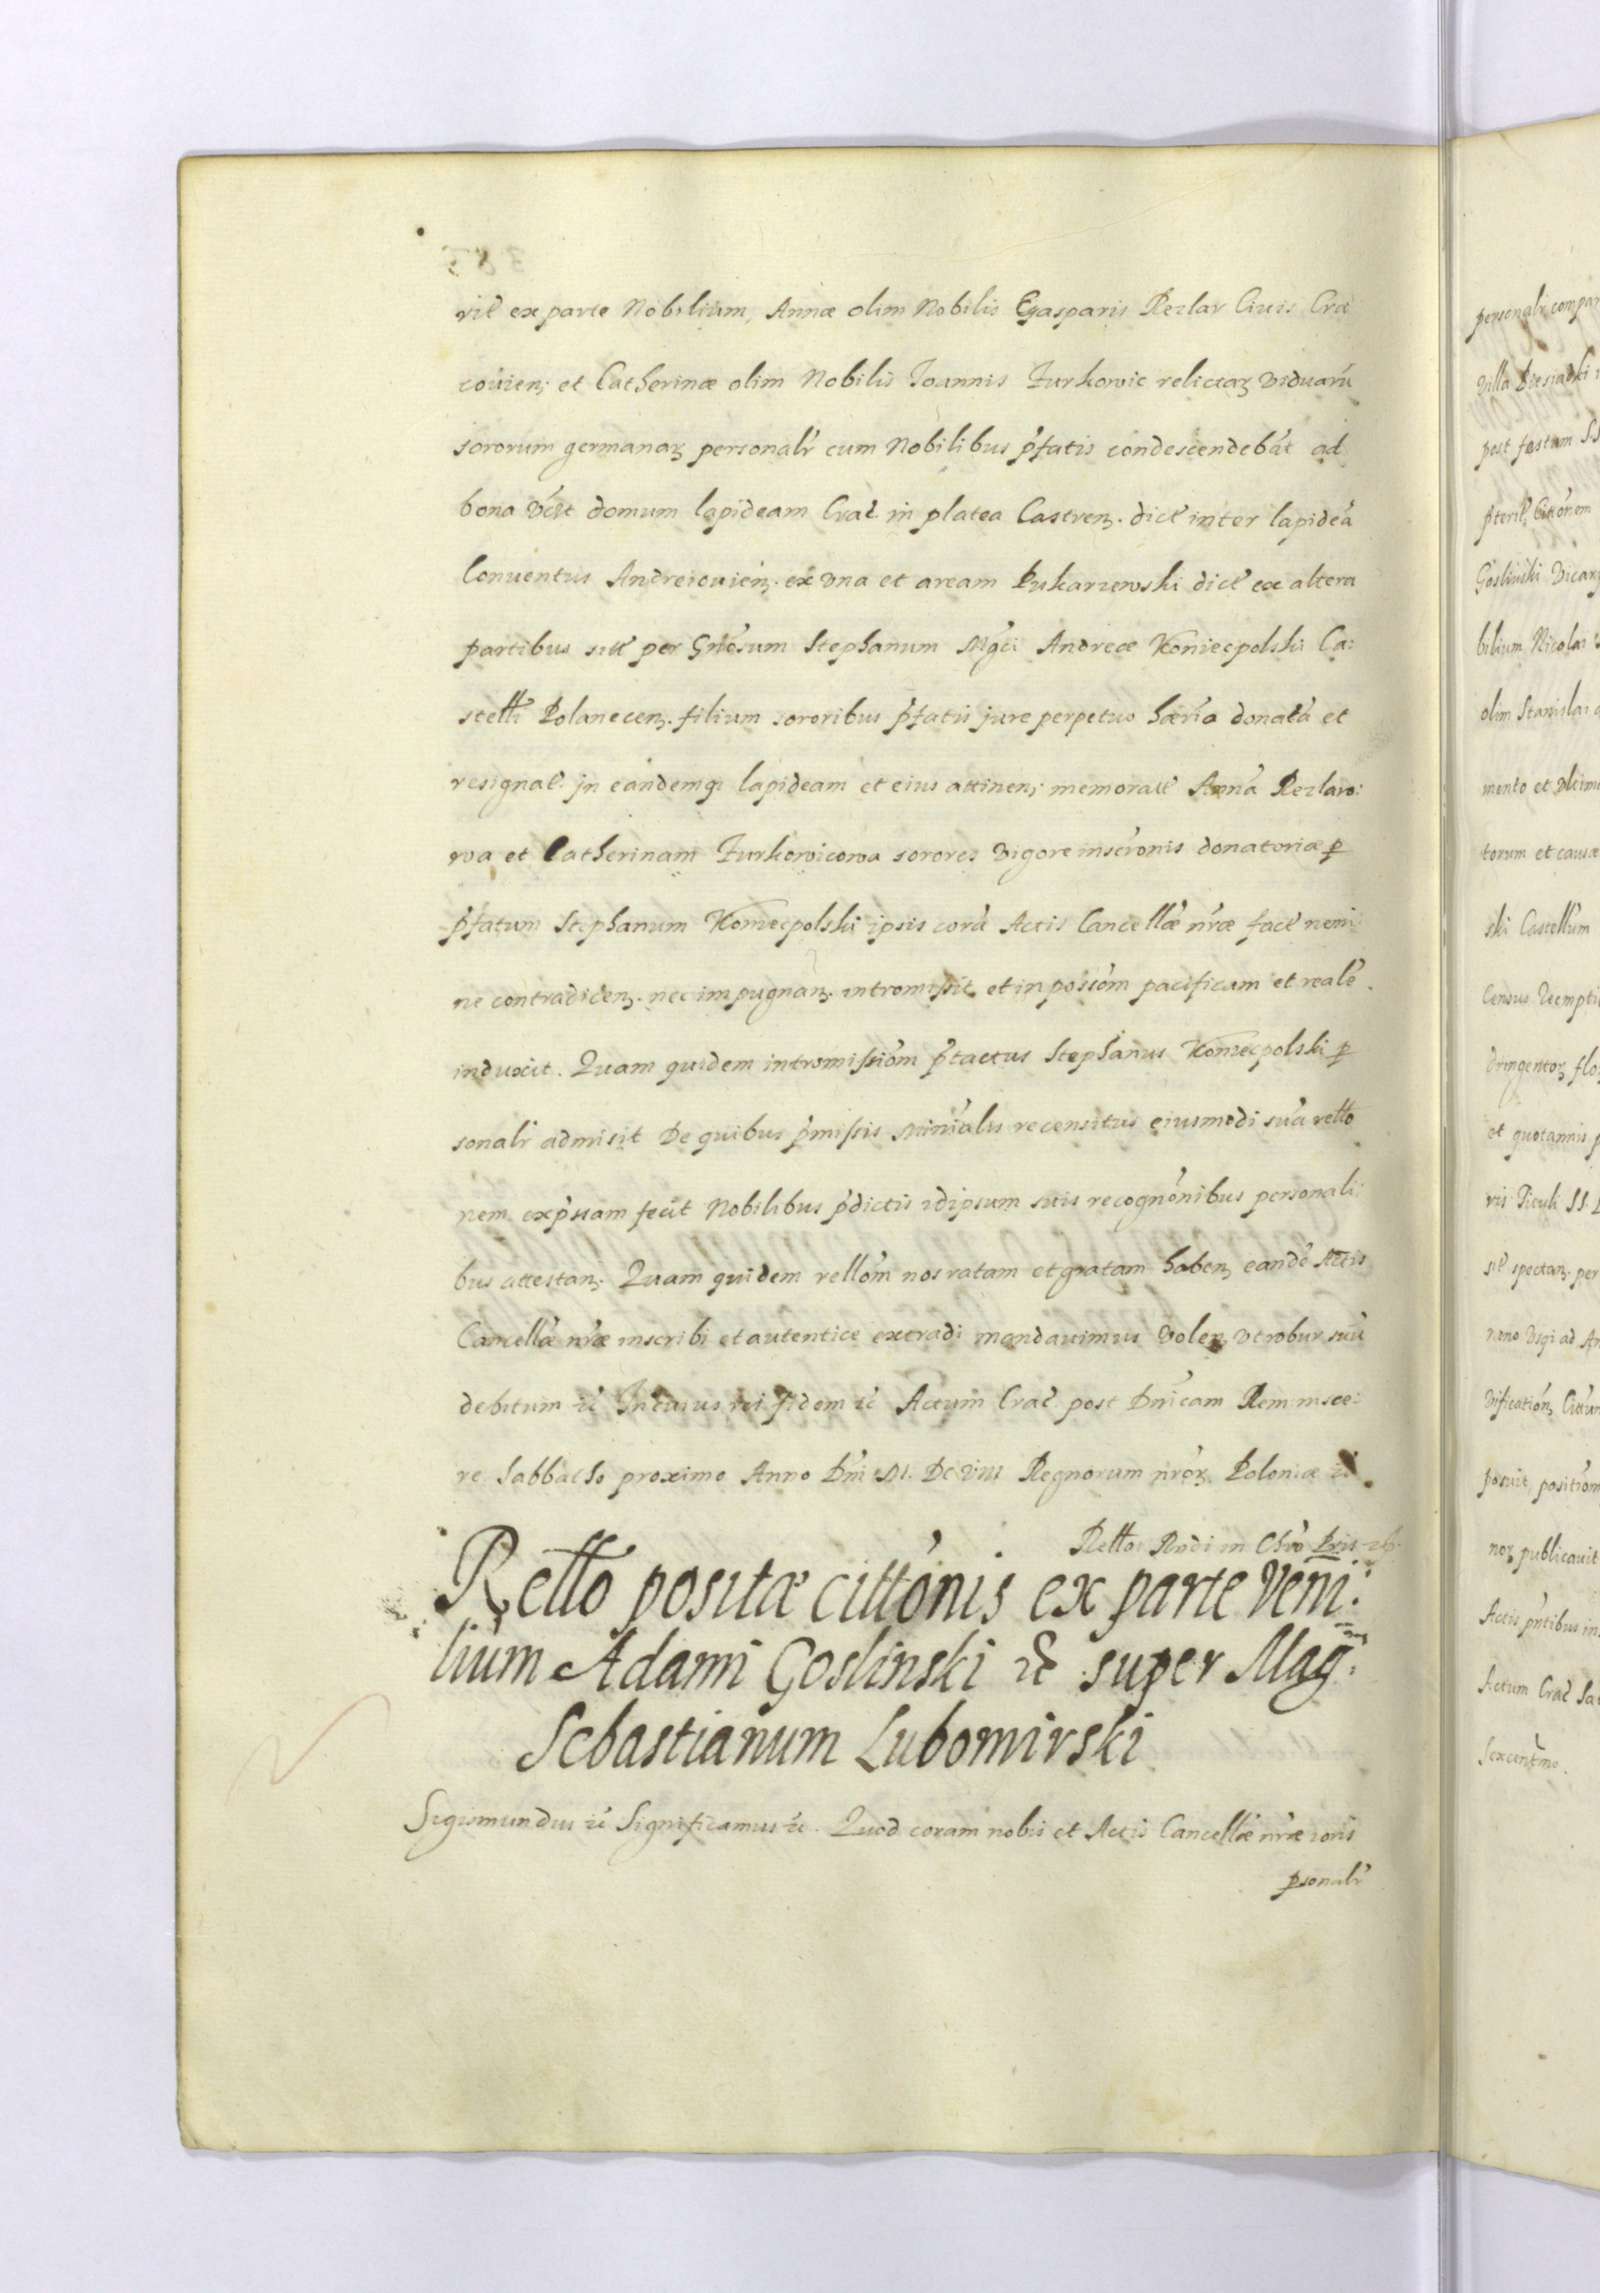 rit ex parte Nobilium, Annæ olim Nobilis Gasparis Rezlar Ciuis Cra
couien; et Catherinæ olim Nobilis Joannis Turkowic relictaȝ Viduarū
sororum germanaȝ personalr cum Nobilibus pfatis condescendebat ad
bona vclt domum lapideam Crac in platea Castrenȝ. dict inter lapideā
Conuentus Andreiouienȝ. ex vna et aream Pukarzewski dict ex altera
partibus sitt per Gnosum Stephanum Mgci Andreæ Koniecpolski Ca:
stelli Polanecenȝ. filium sororibus pfatis jure perpetuo hæria donatā et
resignat. jn eandemq lapideam et eius attinen; memoratt Annā Rezlaro:
wa et Catherinam Turkowicowa sorores vigore inscronis donatoriæ p
pfatum Stephanum Koniecpolski ipsis corā Actis Cancellæ nræ fact nemi
ne contradicenȝ. nec impugnanȝ. intromissit et in possōm pacificam et realē
induxit. Quam quidem intromissiōm ptactus Stephanus Koniecpolski p
sonalr admisit De quibus pmissis Minialis recensitus eiusmodi suā rello
nem expssam fecit Nobilibus pdictis idipsum suis recognōnibus personali:
bus attestanȝ. Quam quidem rellōm nos ratam et gratam habenȝ eandē Actis
Cancellæ nræ inscribi et autentice extradi mandauimus volenȝ vt robur suū
debitum ec In cuius rei fidem ec Actum Crac post Dnicam Reminisce:
re Sabbatho proximo Anno Dni M. DC VIII Regnorum nroȝ Poloniæ ec
Rello Rndi in Chro Pris
Rello positæ cittonis ex parte Veni:
lium Adami Goslinski ec super Mag:
Sebastianum Lubomirski
Sigismundus ec Significamus ec. Quod coram nobis et Actis Cancellæ nræ
psonalr
personalr compar
Villa
post festum
Citōnem
Goslinski Vicar
bilium Nicolai
olim Stanislai
mento et vltim
torum et causæ
ski Castellum
Census
dringentoȝ flo
et quotannis
vis Tituli SS.
spectanȝ. per
ad An
posuit, positiom
noȝ publicauit
Actis pntibus in
Actum Crac Sa